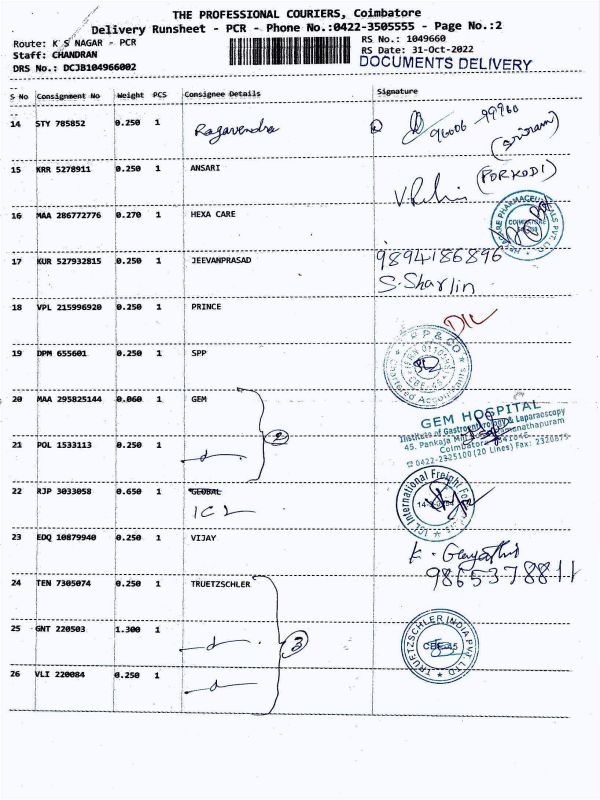 THE PROFESSIONAL COURIERS, Coimbatore
Delivery Runsheet - PCR - Phone No.:0422-3505555 - Page No.:2
Route: K S NAGAR - PCR
RS No.: 1049660
Staff: CHANDRAN
RS Date: 31-Oct-2022
DRS No.: DCJB104966002
DOCUMENTS DELIVERY
S No Consignment No Weight PCS Consignee Details Signature
14 STY 785852 0.250 1 Ragavendra 96006 99960
(Sriram)
15 KRR 5278911 0.250 1 ANSARI (PORKODI)
16 MAA 286772776 0.270 1 HEXA CARE
17 KUR 527932815 0.250 1 JEEVANPRASAD 9894186896
S. Sharlin
18 VPL 215996920 0.250 1 PRINCE
19 DPM 655601 0.250 1 SPP
P P & CO
Chartered Accountants
20 MAA 295825144 0.060 1 GEM
2
GEM HOSPITAL
Institute of Gastroenterology & Laparoscopy
45, Pankaja Mill Road, Ramanathapuram
Coimbatore - 641045
0422-2325100 (20 Lines) Fax: 2320875
21 POL 1533113 0.250 1
22 RJP 3033058 0.650 1 GLOBAL
ICL
ICL International Freight
23 EDQ 10879940 0.250 1 VIJAY K. Gayathri
9865378811
24 TEN 7305074 0.250 1 TRUETZSCHLER
25 GNT 220503 1.300 1
3
TRUETZSCHLER INDIA PVT LTD
CBE-45
26 VLI 220084 0.250 1